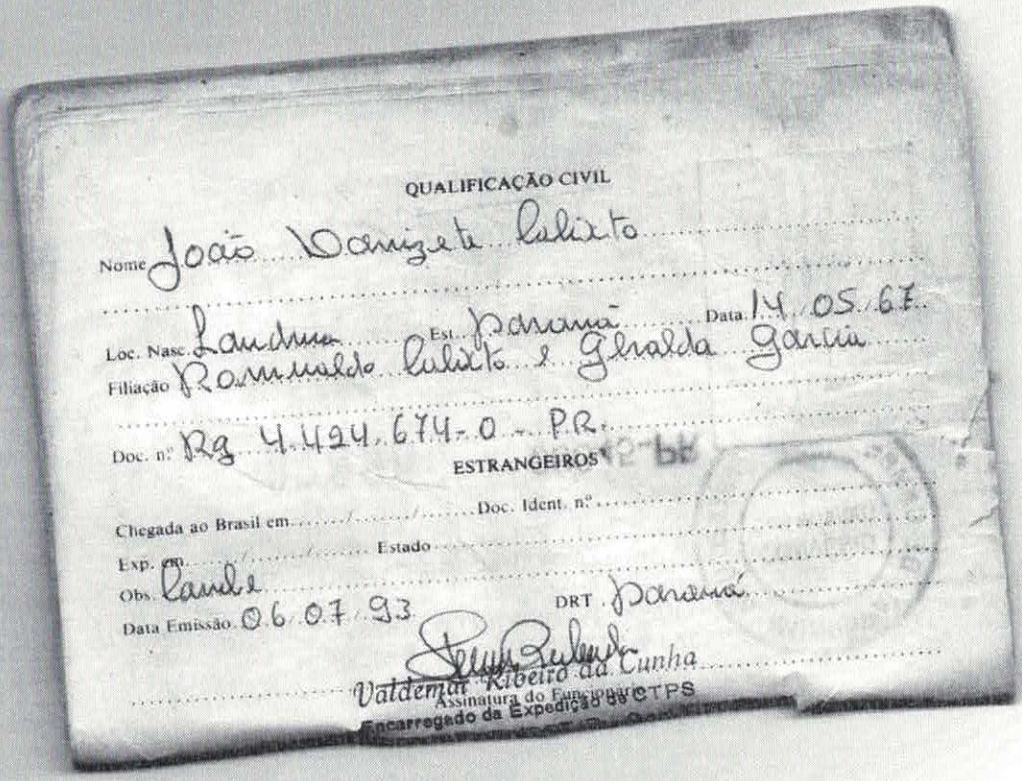 QUALIFICAÇÃO CIVIL
Nome João Donizete Calixto
Loc. Nasc. Londrina Est. Paraná Data 14.05.67
Filiação Romualdo Calixto e Geralda Garcia
Doc. nº Rg 4.424.674-0 - PR.
ESTRANGEIROS
Chegada ao Brasil em ......./......./....... Doc. Ident. nº
Exp. em ......./......./....... Estado
Obs. Cambé
Data Emissão 06.07.93 DRT Paraná
Valdemar Ribeiro da Cunha
Assinatura do Funcionário
Encarregado da Expedição de CTPS